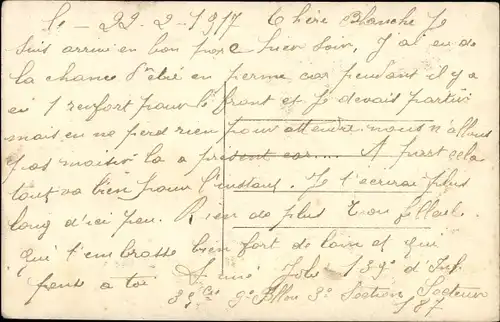 le 22-2-1917 Chère Blanche Je
suis arrivé en bon port hier soir, J'ai eu de
la chance d'être en perme car pendant il y a
eu 1 renfort pour le front et je devais partir
mais en ne perd rien pour attendre nous n'allons
pas la a présent car... A part cela
tout va bien pour l'instant. Je t'ecrirai plus
long d'ici peu. Rien de plus Ton
qui t'embrasse bien fort de loin et qui
pense a toi Aimé 139e d'Inf.
33e Cie 9e Btllon 3e Section Secteur
187